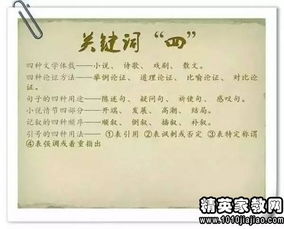 关键词“四”
四种文学体裁——小说、诗歌、戏剧、散文。
四种论证方法——举例论证、道理论证、比喻论证、对比论
证。
句子的四种用途——陈述句、疑问句、祈使句、感叹句。
小说情节四部分——开端、发展、高潮、结局。
记叙的四种顺序——顺叙、倒叙、插叙、补叙。
引号的四种用法——①表引用 ②表讽刺或否定 ③表特定称谓
④表强调或着重指出
精英家教网
www.1010jiajiao.com